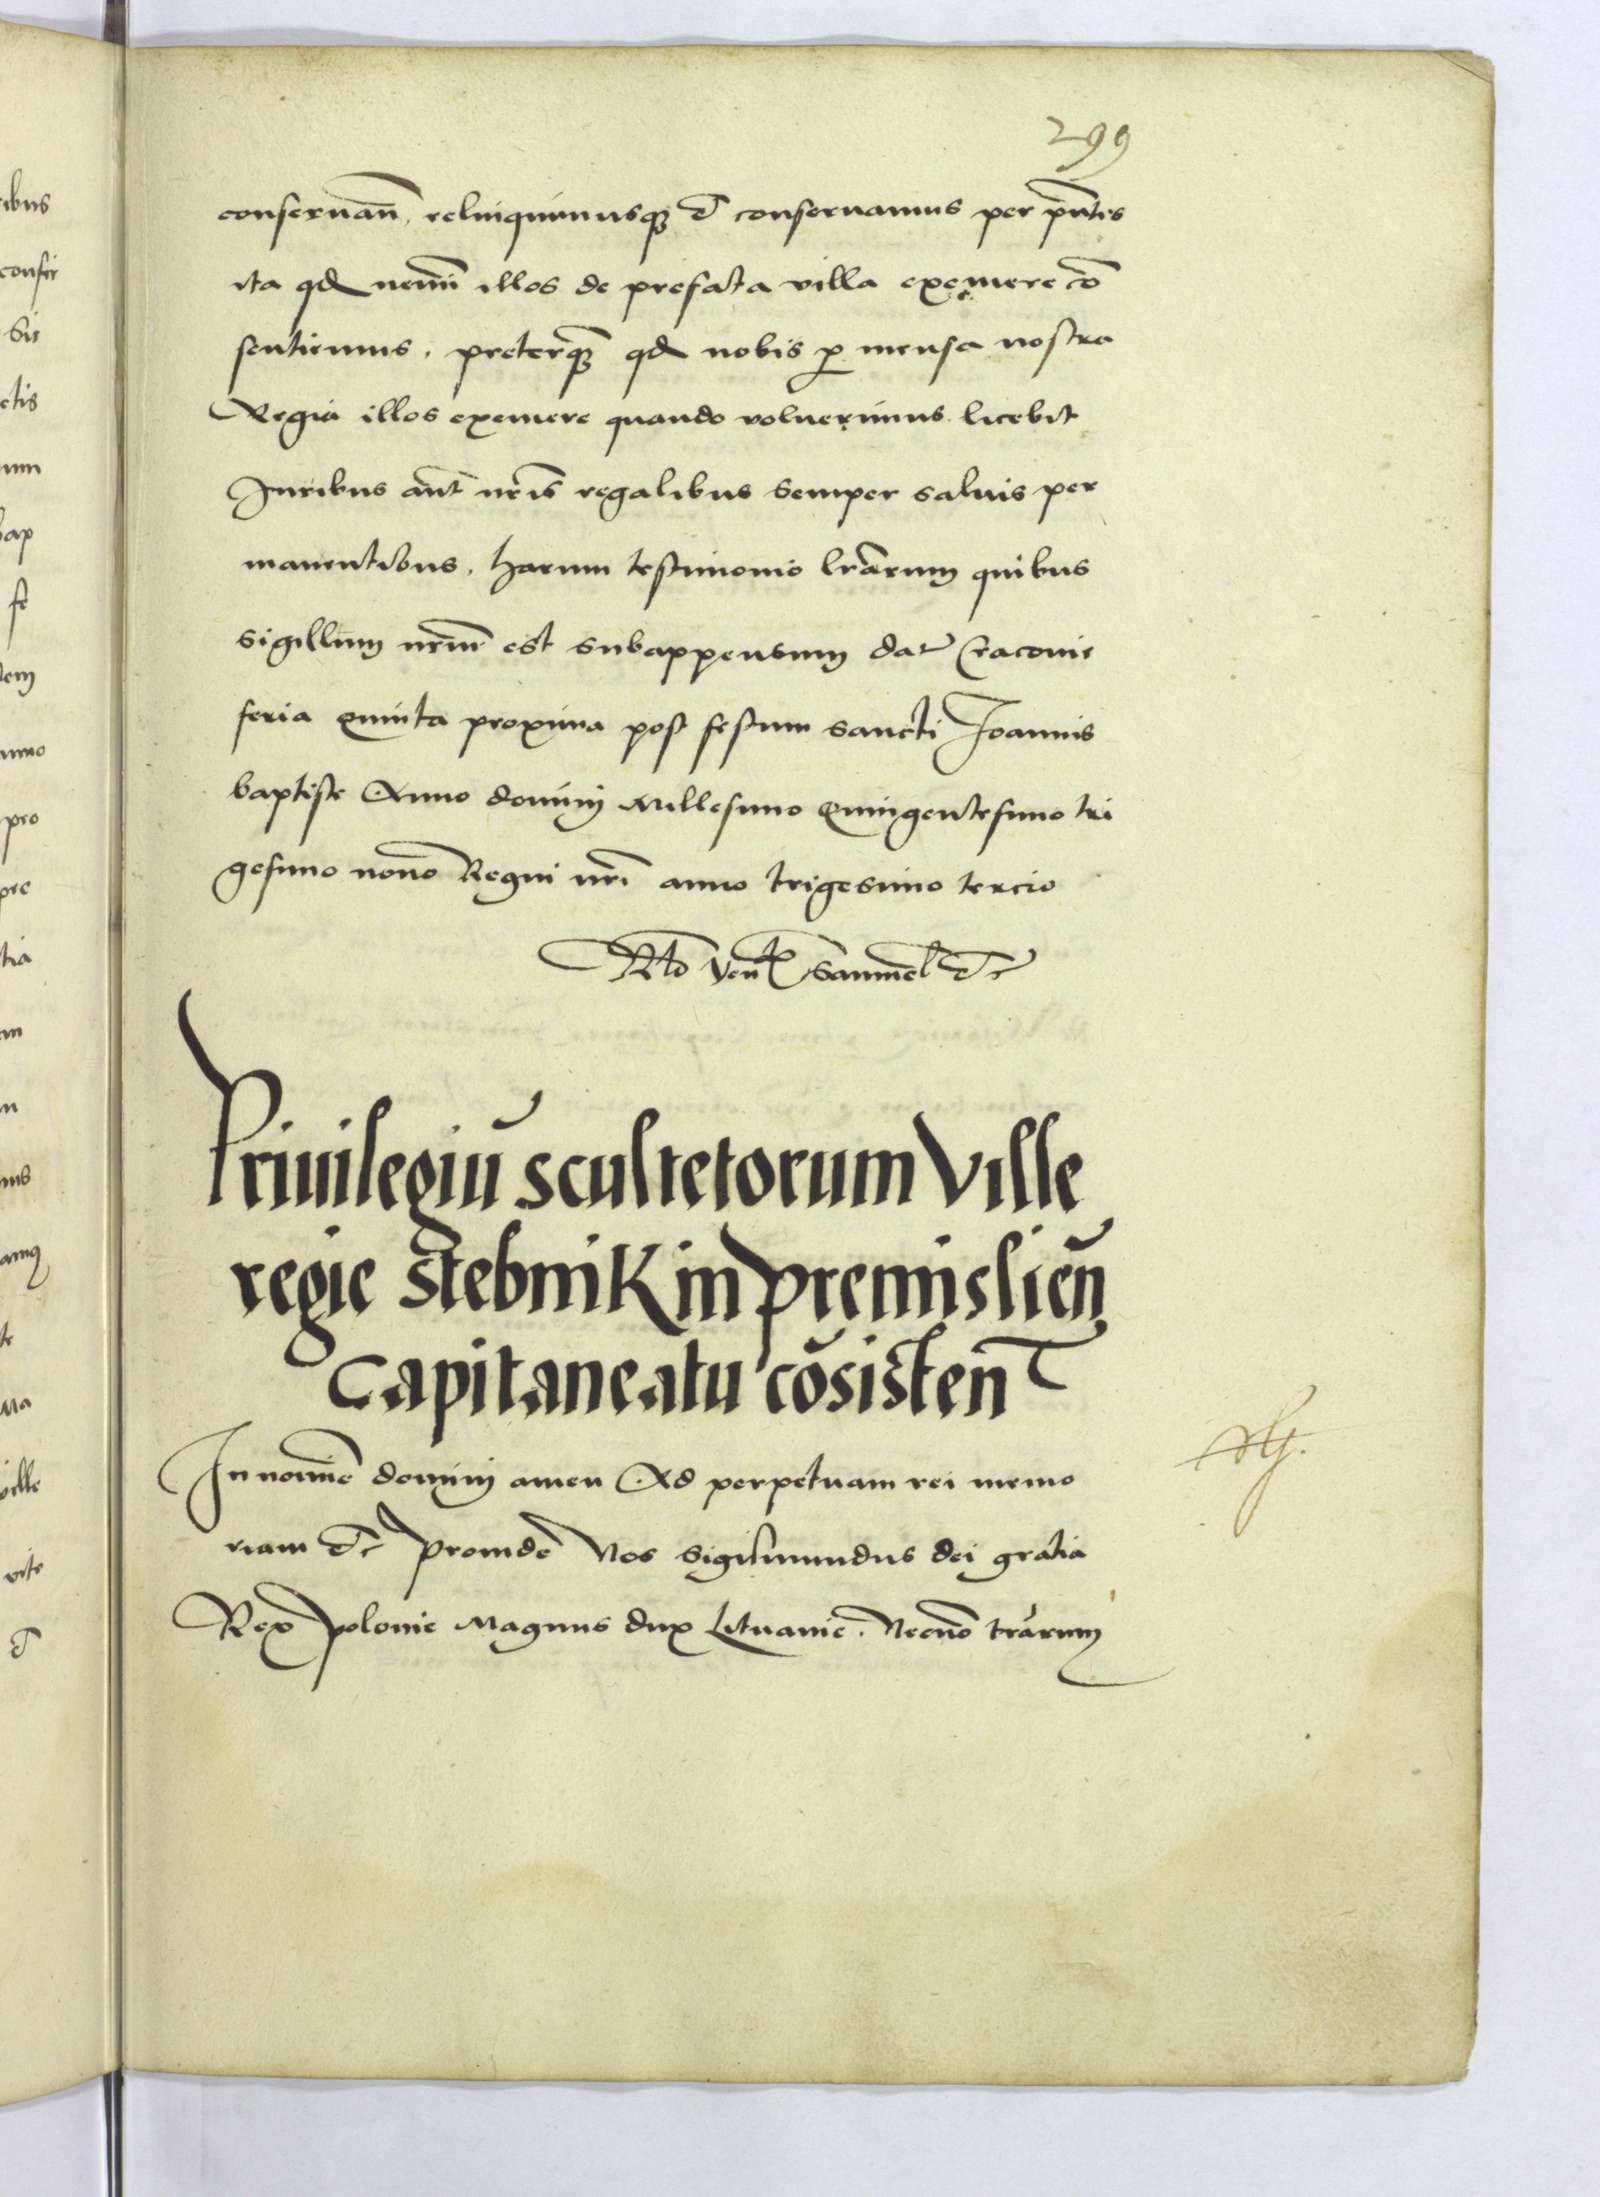 299
conseruan̄, relinquimusqꝫ et conseruamus per pn̄tes
ita qd nemini illos de prefata villa exemere cō
sentiemus, preterqꝫ qd nobis p mensa nostra
Regia illos exemere quando voluerimus licebit
Iuribus aūt nr̄is regalibus semper saluis per
manentibus, harum testimonio lr̄arum quibus
sigillum nr̄um est subappensum dat Cracouie
feria quinta proxima post festum sancti Joannis
baptiste Anno domini Millesimo Quingentesimo tri
gesimo nono Regni nr̄i anno trigesimo tercio
Rtō Ven Samuel etc
Priuilegiū scultetorum Ville
regie Stebnik in premislien̄
Capitaneatu cōsisten̄
In nomīe domini amen Ad perpetuam rei memo
riam etc Proinde Nos Sigismundus dei gratia
Rex polonie Magnus dux Lituanie. Necnō trārum